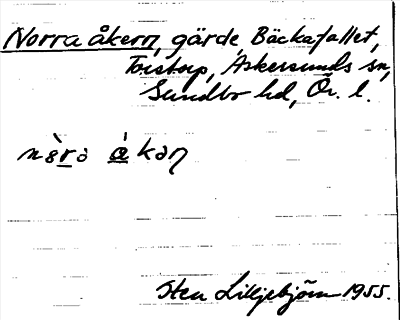 Norra åkern, gärde, Bäckafallet,
Torstorp, Askersunds sn,
Sundbo hd, Ör. l.
nòra åkaŋ
Sten Lilljebjörn 1955.